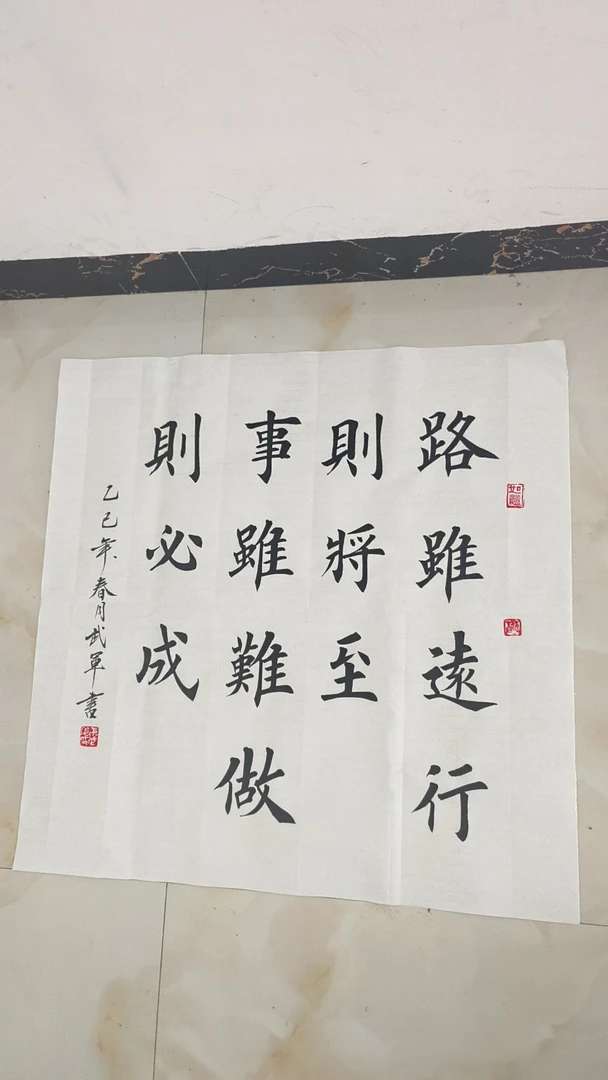 路雖遠行
則將至
事雖難做
則必成
乙巳年春月武軍書